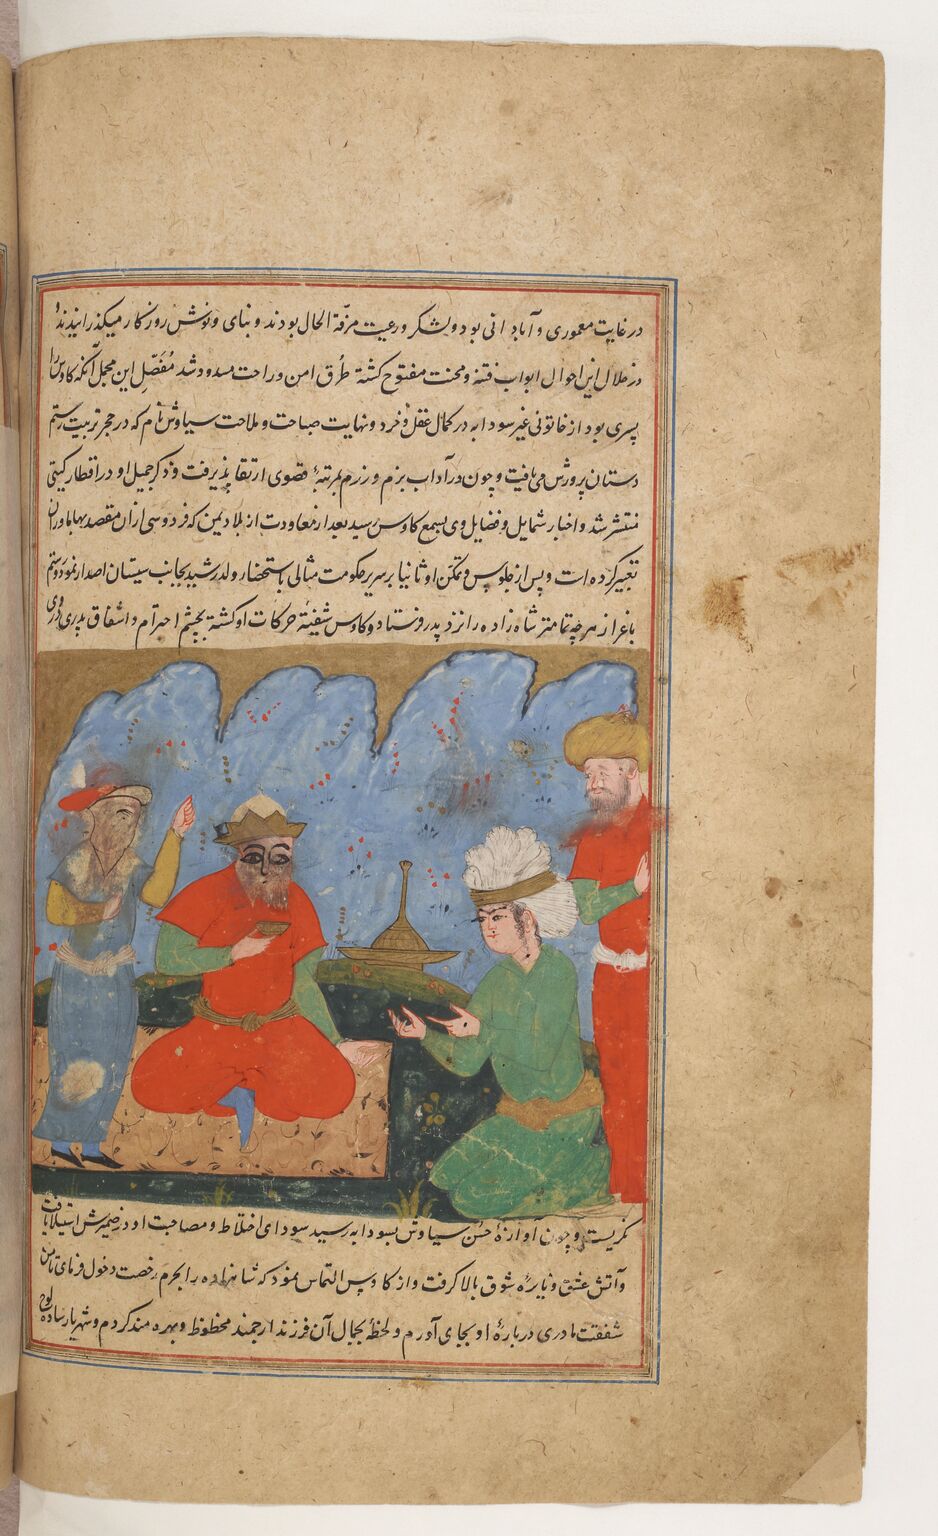 در غایت معموری و آبادانی بود و لشکر و رعیت مرفّه الحال بودند و بنای و نوش روزکار میکذرانیدند و
در خلال این احوال ابواب فتنه و محنت مفتوح کشته طُرق امن و راحت مسدود شد مُفَصّل این مجمل آنکه کاوس را
پسری بود از خاتونی غیر سودابه در کمال عقل و خرد و نهایت صباحت و ملاحت سیاوش نام که در حجر تربیت رستم
دستان پرورش می یافت و چون در آداب بزم و رزم بمرتبهٔ قصوی ارتقا پذیرفت و ذکر جمیل او در اقطار کیتی
منتشر شد و اخبار شمایل و فضایل وی بسمع کاوس رسید بعد از معاودت از بلاد یمن که فردوسی از ان مقصد بهاماوران
تعبیر کرده است و پس از جلوس و تمکن او ثانیا بر سریر حکومت مثالی باستحضار ولد رشید بجانب سیستان اصدار نمود و رستم
باعزاز هر چه تمامتر شاه زاده را نزد پدر فرستاد و کاوس شفیتهٔ حرکات او کشته بچشم احترام و اشفاق پدری در وی
نکریست و چون آوازهٔ حسن سیاوش بسودابه رسید سودای اختلاط و مصاحبت او در ضمیرش استیلا یافت
و آتش عشق و نایرهٔ شوق بالا کرفت و از کاوس التماس نمود که شاهزاده را بحرم رخصت دخول فرمای تا من
شفقت مادری دربارهٔ او بجای آورم و لحظهٔ بجمال آن فرزند ارجمند محظوظ و بهره مند کردم و شهریار ساده لوح